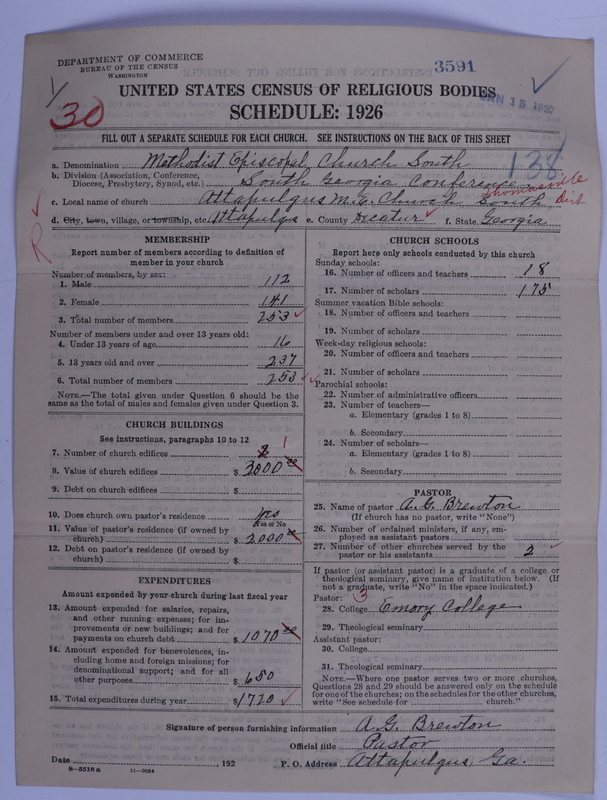 DEPARTMENT OF COMMERCE
BUREAU OF THE CENSUS
WASHINGTON
3591
UNITED STATES CENSUS OF RELIGIOUS BODIES
SCHEDULE: 1926
30
15 192
FILL OUT A SEPARATE SCHEDULE FOR EACH CHURCH. SEE INSTRUCTIONS ON THE BACK OF THIS SHEET
138
a. Denomination Methodist Episcopal Church South
b. Division (Association, Conference, Diocese, Presbytery, Synod, etc.) South Georgia Conference Thomasville Dist
c. Local name of church Attapulgus M.E. Church South
d. City, town, village, or township, etc. Attapulgus e. County Decatur f. State Georgia
MEMBERSHIP
Report number of members according to definition of
member in your church
Number of members, by sex:
1. Male 112
2. Female 141
3. Total number of members 253
Number of members under and over 13 years old:
4. Under 13 years of age 16
5. 13 years old and over 237
6. Total number of members 253
NOTE.—The total given under Question 6 should be the
same as the total of males and females given under Question 3.
CHURCH BUILDINGS
See instructions, paragraphs 10 to 12
7. Number of church edifices 2 1
8. Value of church edifices $ 3000 00
9. Debt on church edifices $
10. Does church own pastor's residence Yes
Yes or No
11. Value of pastor's residence (if owned by
church) $ 2000 00
12. Debt on pastor's residence (if owned by
church) $
EXPENDITURES
Amount expended by your church during last fiscal year
13. Amount expended for salaries, repairs,
and other running expenses; for im-
provements or new buildings; and for
payments on church debt $ 1070 00
14. Amount expended for benevolences, in-
cluding home and foreign missions; for
denominational support; and for all
other purposes $ 650
15. Total expenditures during year $ 1720
CHURCH SCHOOLS
Report here only schools conducted by this church
Sunday schools:
16. Number of officers and teachers 18
17. Number of scholars 175
Summer vacation Bible schools:
18. Number of officers and teachers
19. Number of scholars
Week-day religious schools:
20. Number of officers and teachers
21. Number of scholars
Parochial schools:
22. Number of administrative officers
23. Number of teachers—
a. Elementary (grades 1 to 8)
b. Secondary
24. Number of scholars—
a. Elementary (grades 1 to 8)
b. Secondary
PASTOR
25. Name of pastor A.G. Brewton
(If church has no pastor, write "None")
26. Number of ordained ministers, if any, em-
ployed as assistant pastors
27. Number of other churches served by the
pastor or his assistants 2
If pastor (or assistant pastor) is a graduate of a college or
theological seminary, give name of institution below. (If
not a graduate, write "No" in the space indicated.)
Pastor: 3
28. College Emory College
29. Theological seminary
Assistant pastor:
30. College
31. Theological seminary
NOTE.—Where one pastor serves two or more churches,
Questions 28 and 29 should be answered only on the schedule
for one of the churches; on the schedules for the other churches,
write "See schedule for church."
Signature of person furnishing information A. G. Brewton
Official title Pastor
Date , 192 P. O. Address Attapulgus, Ga.
8—5518a 11—9034